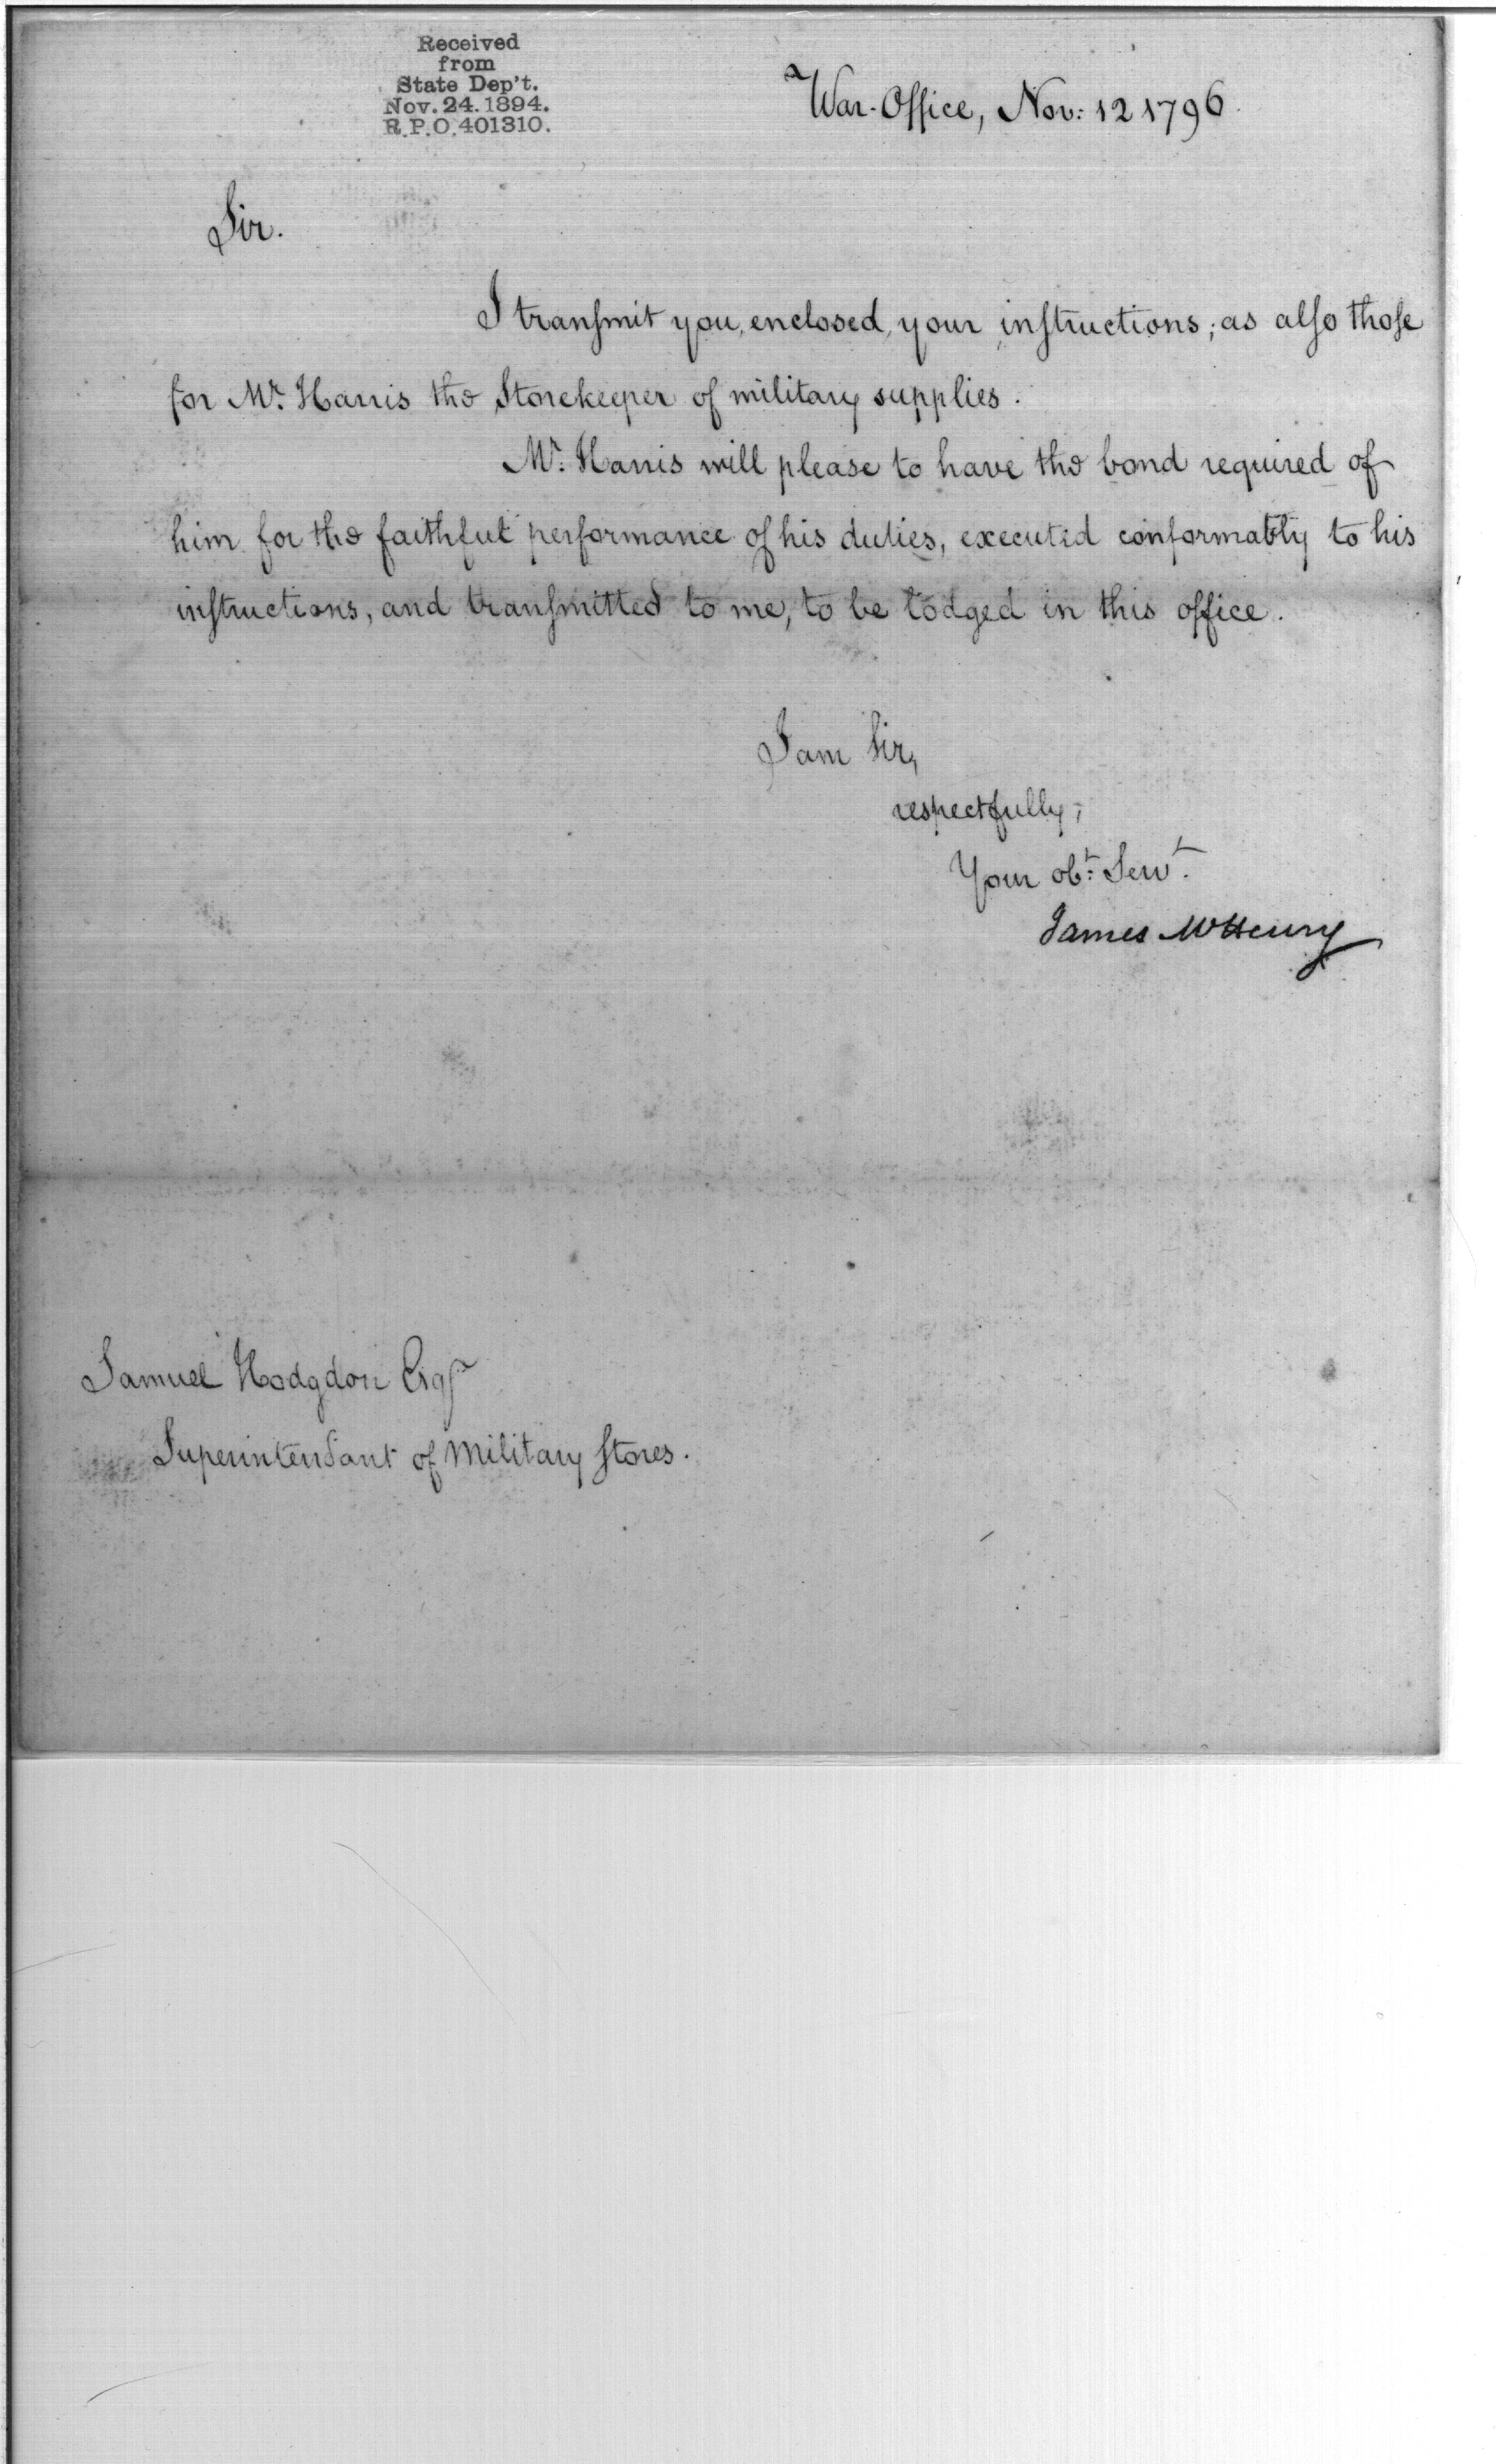 Received
from
State Dep't.
Nov. 24. 1894.
R.P.O. 401310.
War-Office, Nov: 12 1796.
Sir.
I tranſmit you, enclosed, your inſtructions; as alſo thoſe
for Mr. Harris the Storekeeper of military supplies.
Mr. Harris will please to have the bond required of
him for the faithful performance of his duties, executed conformably to his
inſtructions, and tranſmitted to me, to be lodged in this office.
I am Sir,
respectfully,
Your obt. Servt.
James McHenry
Samuel Hodgdon Esqr
Superintendant of Military Stores.